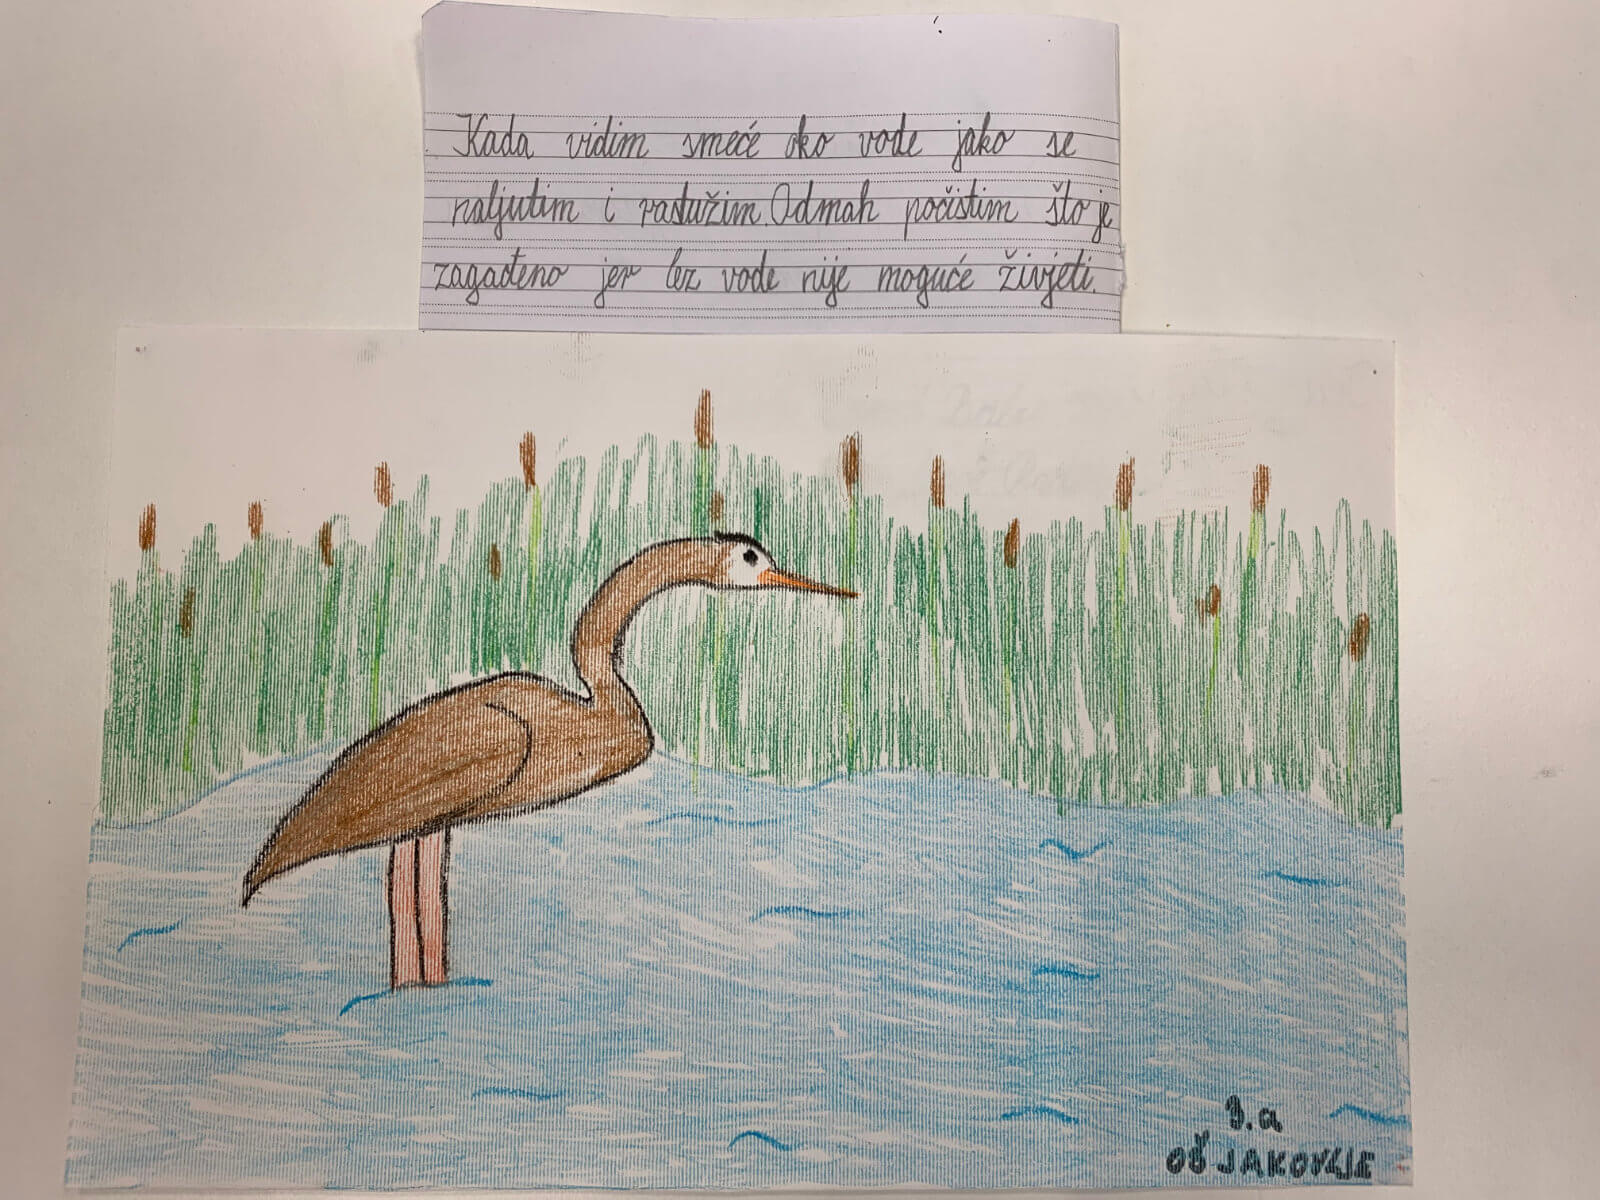 Kada vidim smeće oko vode jako se
naljutim i rastužim. Odmah počistim što je
zagađeno jer bez vode nije moguće živjeti.
3.a
OŠ JAKOVLJE